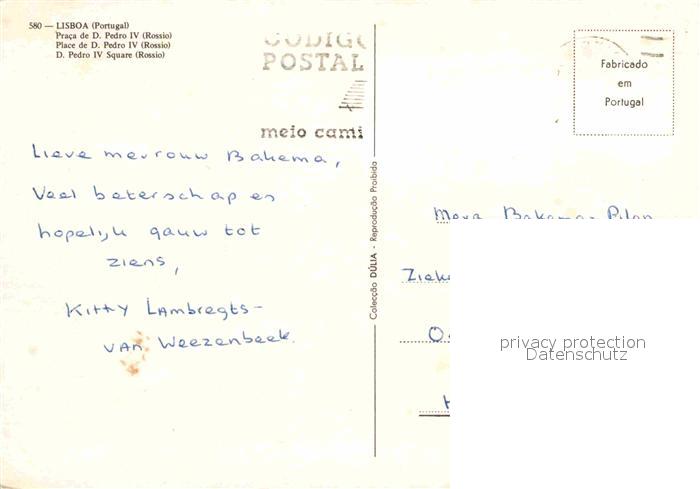 580 — LISBOA (Portugal)
Praça de D. Pedro IV (Rossio)
Place de D. Pedro IV (Rossio)
D. Pedro IV Square (Rossio)
CODIGO
POSTAL
meio cami
Fabricado
em
Portugal
Lieve mevrouw Bakema,
Veel beterschap en
hopelijk gauw tot
ziens,
Kitty Lambregts-
van Weezenbeek.
Colecção DÚLIA - Reprodução Proibida
Mevr. Bakema-Pilon
privacy protection
Datenschutz